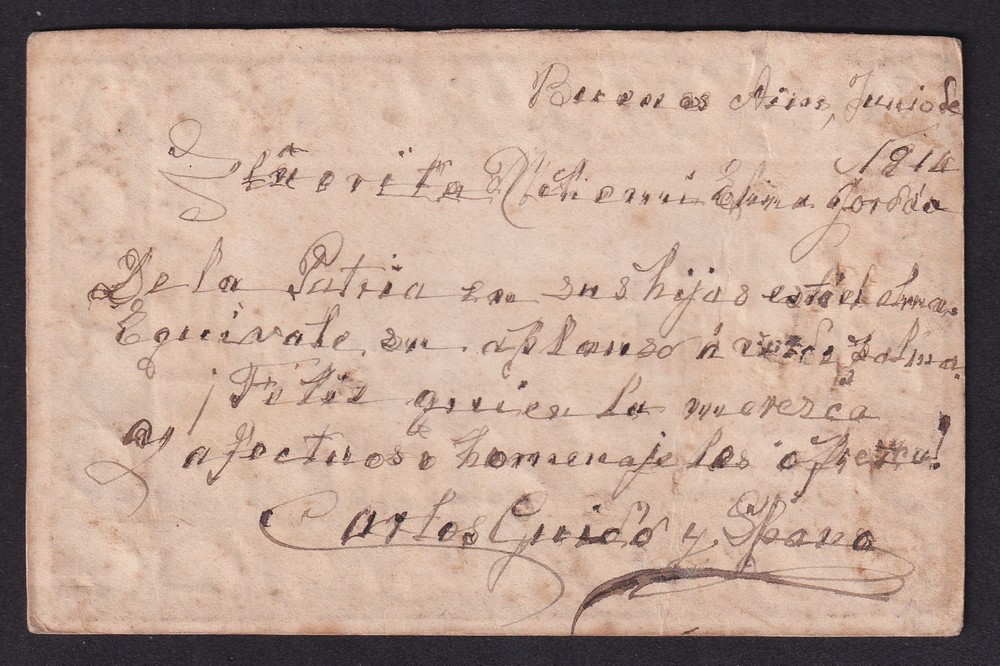 Buenos Aires, Junio de
1914
Señorita Nohemi Elina Gordóo
De la Patria en sus hijos está el alma.
Equivale su aplauso á verde palma.
¡Feliz quien la merezca
y afectuoso homenaje les ofrezca!
Carlos Guido y Spano